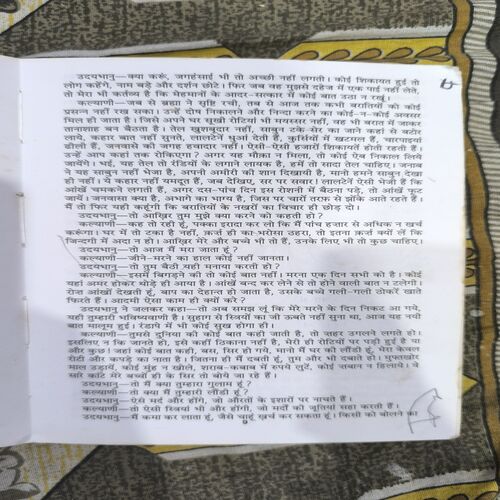 उदयभानु—क्या करूं, जगहंसाई भी तो अच्छी नहीं लगती। कोई शिकायत हुई तो
लोग कहेंगे, नाम बड़े और दर्शन छोटे। फिर जब वह मुझसे दहेज में एक पाई नहीं लेते,
तो मेरा भी कर्तव्य है कि मेहमानों के आदर-सत्कार में कोई बात उठा न रखूं।
कल्याणी—जब से ब्रह्मा ने सृष्टि रची, तब से आज तक कभी बरातियों को कोई
प्रसन्न नहीं रख सका। उन्हें दोष निकालने और निन्दा करने का कोई-न-कोई अवसर
मिल ही जाता है। जिसे अपने घर सूखी रोटियां भी मयस्सर नहीं, वह भी बरात में जाकर
तानाशाह बन बैठता है। तेल खुशबूदार नहीं, साबुन टके-सेर का जाने कहां से बटोर
लाये, कहार बात नहीं सुनते, लालटेनें धुआं देती हैं, कुर्सियों में खटमल हैं, चारपाइयां
ढीली हैं, जनवासे की जगह हवादार नहीं। ऐसी-ऐसी हजारों शिकायतें होती रहती हैं।
उन्हें आप कहां तक रोकिएगा? अगर यह मौका न मिला, तो कोई ऐब निकाल लिये
जायेंगे। भई, यह तेल तो रंडियों के लगाने लायक है, हमें तो सादा तेल चाहिए। जनाब
ने यह साबुन नहीं भेजा है, अपनी अमीरी की शान दिखायी है, मानो हमने साबुन देखा
ही नहीं। ये कहार नहीं यमदूत हैं, जब देखिए, सर पर सवार। लालटेनें ऐसी भेजी हैं कि
आंखें चमकने लगती हैं, अगर दस-पांच दिन इस रोशनी में बैठना पड़े, तो आंखें फूट
जायें। जनवासा क्या है, अभागे का भाग्य है, जिस पर चारों तरफ से झोंके आते रहते हैं।
मैं तो फिर यही कहूंगी कि बरातियों के नखरों का विचार ही छोड़ दो।
उदयभानु—तो आख़िर तुम मुझे क्या करने को कहती हो?
कल्याणी—कह तो रही हूं, पक्का इरादा कर लो कि मैं पांच हजार से अधिक न खर्च
करूंगा। घर में तो टका है नहीं, कर्ज ही का-भरोसा ठहरा, तो इतना कर्ज क्यों लें कि
जिन्दगी में अदा न हो। आखिर मेरे और बच्चे भी तो हैं, उनके लिए भी तो कुछ चाहिए।
उदयभानु—तो आज मैं मरा जाता हूं?
कल्याणी—जीने-मरने का हाल कोई नहीं जानता।
उदयभानु—तो तुम बैठी यही मनाया करती हो?
कल्याणी—इसमें बिगड़ने की तो कोई बात नहीं। मरना एक दिन सभी को है। कोई
यहां अमर होकर थोड़े ही आया है। आंखें बन्द कर लेने से तो होने वाली बात न टलेगी।
रोज आंखों देखती हूं, बाप का देहान्त हो जाता है, उसके बच्चे गली-गली ठोकरें खाते
फिरते हैं। आदमी ऐसा काम ही क्यों करे?
उदयभानु ने जलकर कहा—तो अब समझ लूं कि मेरे मरने के दिन निकट आ गये,
यही तुम्हारी भविष्यवाणी है। सुहाग से स्त्रियों का जी ऊबते नहीं सुना था, आज यह नयी
बात मालूम हुई। रंडापे में भी कोई सुख होगा ही।
कल्याणी—तुमसे दुनिया की कोई बात कही जाती है, तो जहर उगलने लगते हो।
इसलिए न कि जानते हो, इसे कहीं ठिकाना नहीं है, मेरी ही रोटियों पर पड़ी हुई है या
और कुछ! जहां कोई बात कही, बस, सिर हो गये, मानों मैं घर की लौंडी हूं, मेरा केवल
रोटी और कपड़े का नाता है। जितना ही मैं दबती हूं, तुम और भी दबाते हो। मुफ्तखोर
माल उड़ायें, कोई मुंह न खोले, शराब-कबाब में रुपये लुटें, कोई जबान न हिलाये। वे
सारे कांटे मेरे बच्चों ही के सिर तो बोये जा रहे हैं।
उदयभानु—तो मैं क्या तुम्हारा गुलाम हूं?
कल्याणी—तो क्या मैं तुम्हारी लौंडी हूं?
उदयभानु—ऐसे मर्द और होंगे, जो औरतों के इशारों पर नाचते हैं।
कल्याणी—तो ऐसी स्त्रियां भी और होंगी, जो मर्दों की जूतियां सहा करती हैं।
उदयभानु—मैं कमा कर लाता हूं, जैसे चाहूं खर्च कर सकता हूं। किसी को बोलने का